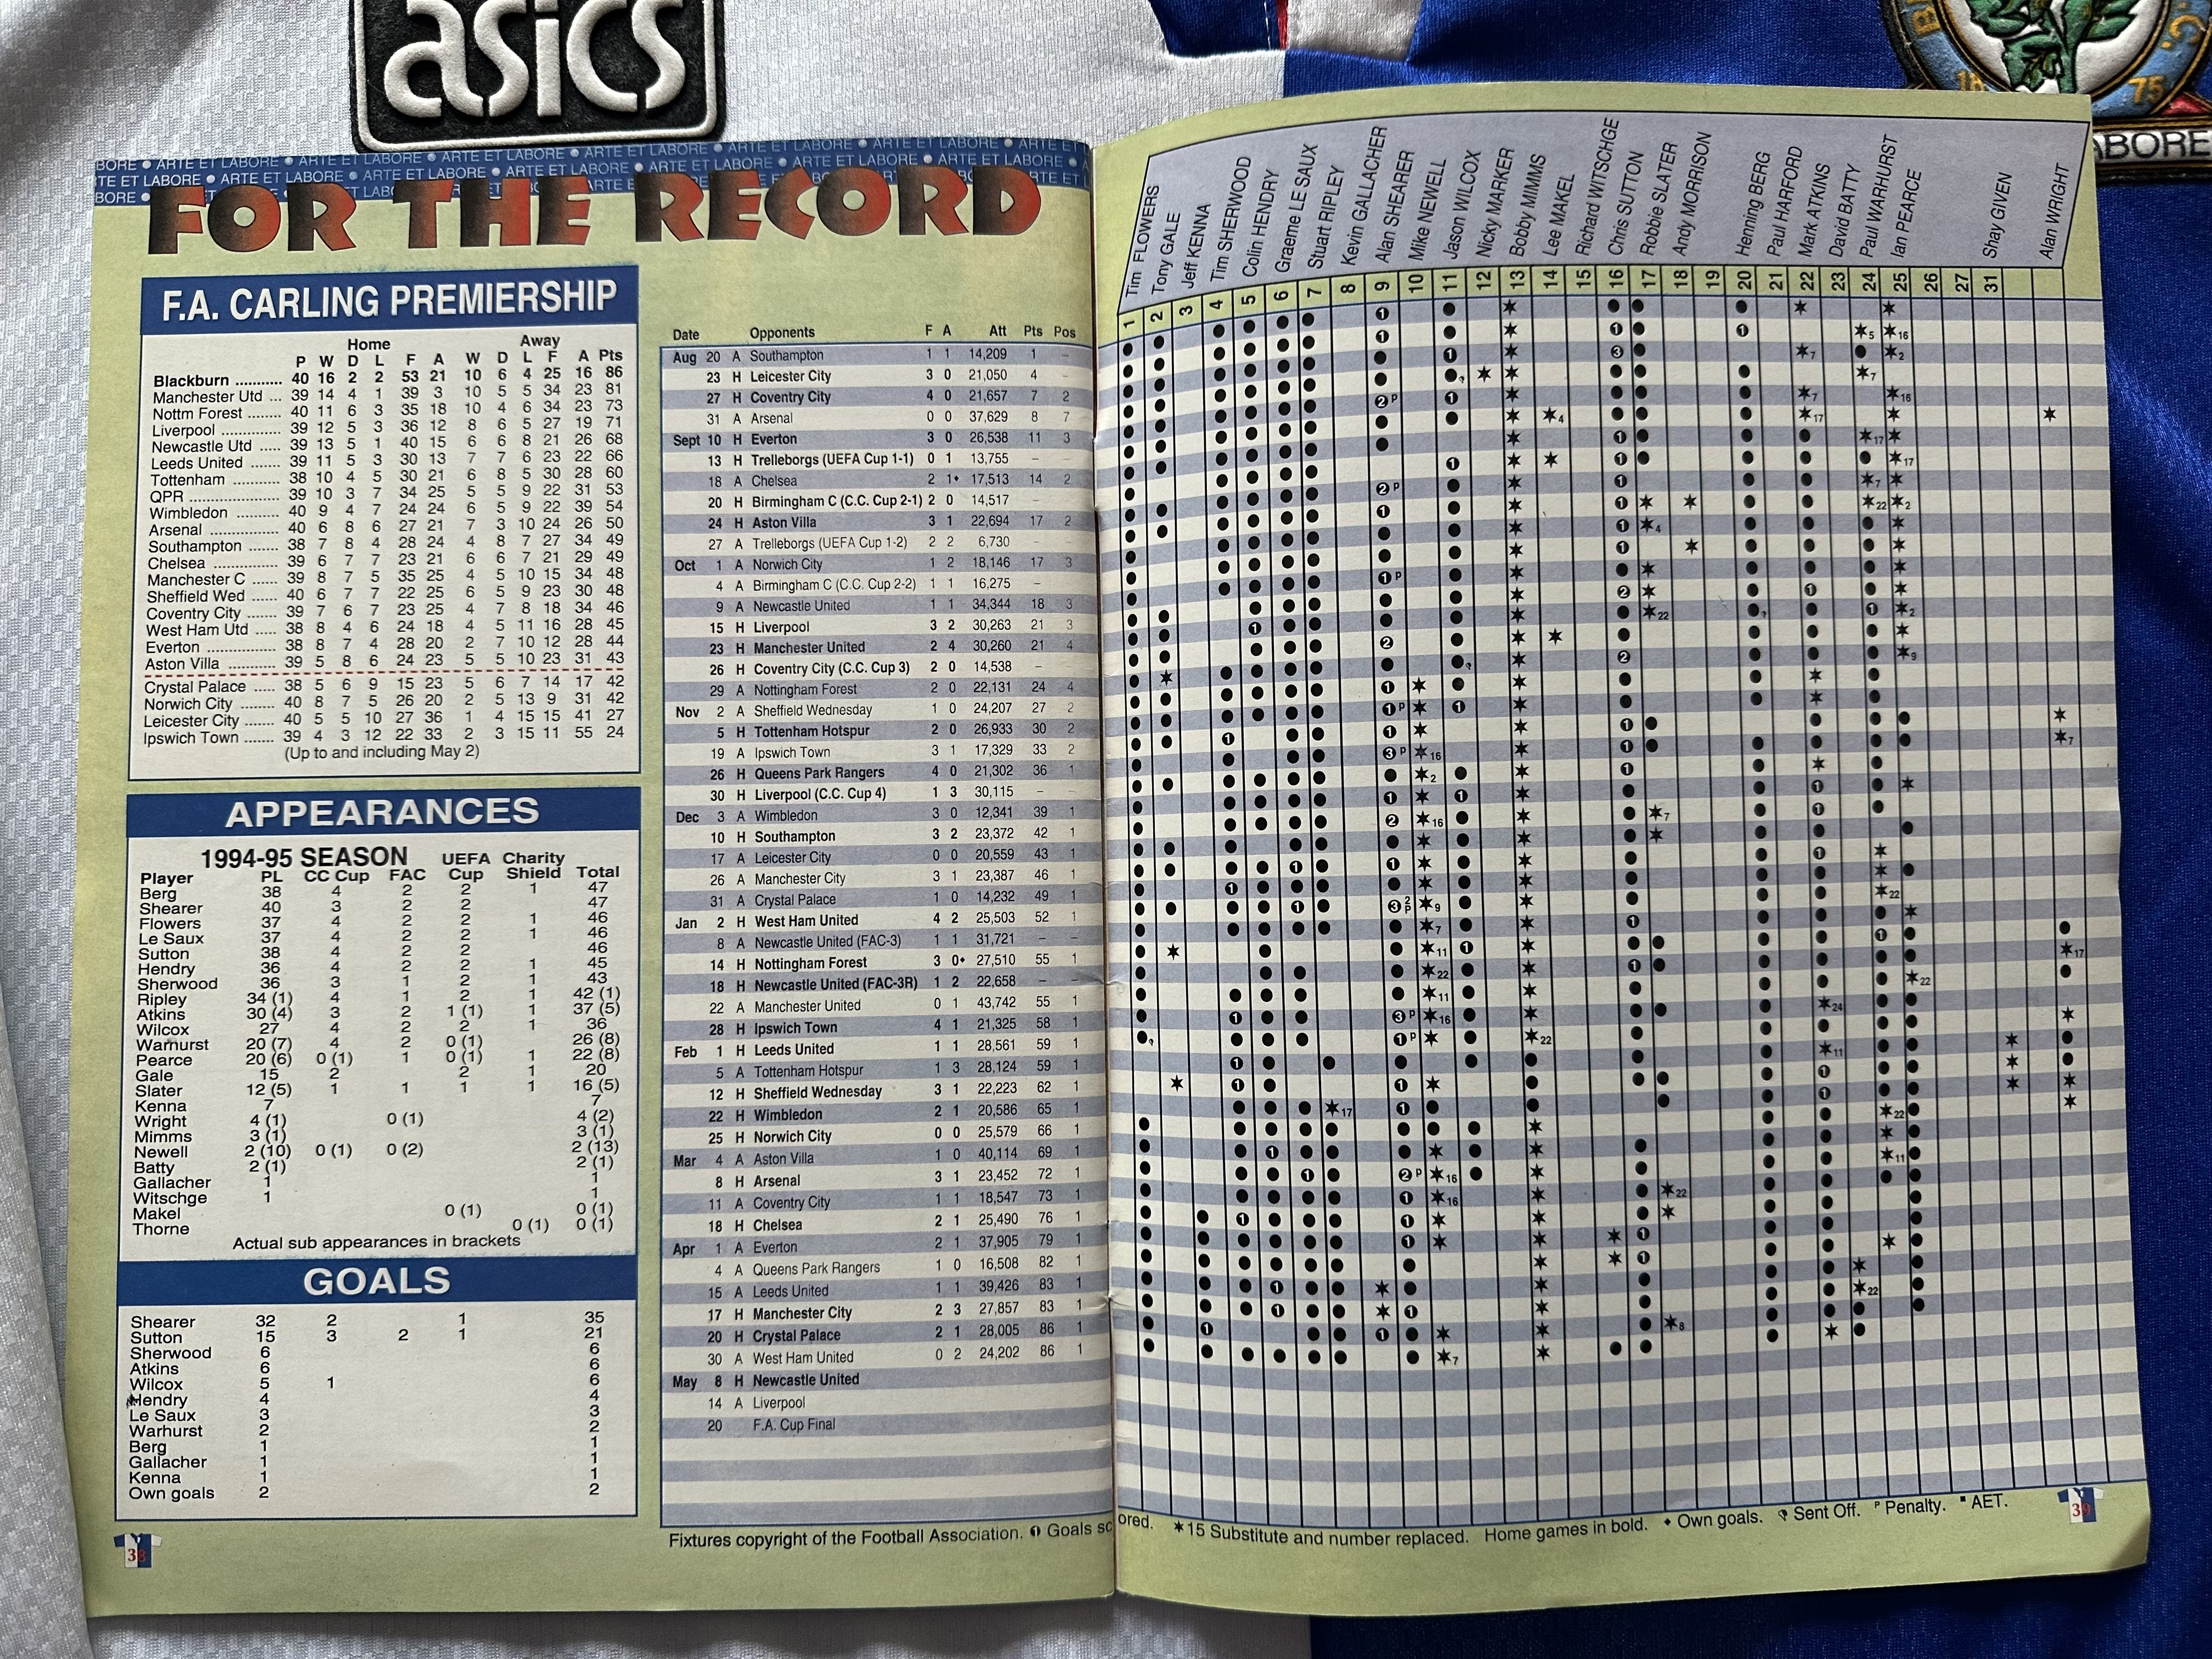 asics
BORE • ARTE ET LABORE • ARTE ET LABORE • ARTE ET LABORE • ARTE ET LABORE • ARTE ET LABORE
FOR THE RECORD
F.A. CARLING PREMIERSHIP
Home Away
P W D L F A W D L F A Pts
Blackburn 40 16 2 2 53 21 10 6 4 25 16 86
Manchester Utd 39 14 4 1 39 3 10 5 5 34 23 81
Nottm Forest 40 11 6 3 35 18 10 4 6 34 23 73
Liverpool 39 12 5 3 36 12 8 6 5 27 19 71
Newcastle Utd 39 13 5 1 40 15 6 6 8 21 26 68
Leeds United 39 11 5 3 30 13 7 7 6 23 22 66
Tottenham 38 10 4 5 30 21 6 8 5 30 28 60
QPR 39 10 3 7 34 25 5 5 9 22 31 53
Wimbledon 40 9 4 7 24 24 6 5 9 22 39 54
Arsenal 40 6 8 6 27 21 7 3 10 24 26 50
Southampton 38 7 8 4 28 24 4 8 7 27 34 49
Chelsea 39 6 7 7 23 21 6 7 6 21 29 49
Manchester C 39 8 7 5 35 25 4 5 10 15 34 48
Sheffield Wed 40 6 7 7 22 25 6 5 9 23 30 48
Coventry City 39 7 6 7 23 25 4 7 8 18 34 46
West Ham Utd 38 8 4 6 24 18 4 5 11 16 28 45
Everton 38 8 7 4 28 20 2 7 10 12 28 44
Aston Villa 39 5 8 6 24 23 5 5 10 23 31 43
Crystal Palace 38 5 6 9 15 23 5 6 7 14 17 42
Norwich City 40 8 7 5 26 20 2 5 13 9 31 42
Leicester City 40 5 5 10 27 36 1 4 15 15 41 27
Ipswich Town 39 4 3 12 22 33 2 3 15 11 55 24
(Up to and including May 2)
APPEARANCES
1994-95 SEASON UEFA Charity
Player PL CC Cup FAC Cup Shield Total
Berg 38 4 2 2 1 47
Shearer 40 3 2 2 47
Flowers 37 4 2 2 1 46
Le Saux 37 4 2 2 1 46
Sutton 38 4 2 2 46
Hendry 36 4 2 2 1 45
Sherwood 36 3 1 2 1 43
Ripley 34 (1) 4 1 2 1 42 (1)
Atkins 30 (4) 3 2 1 (1) 1 37 (5)
Wilcox 27 4 2 2 1 36
Warhurst 20 (7) 4 2 0 (1) 26 (8)
Pearce 20 (6) 0 (1) 1 0 (1) 1 22 (8)
Gale 15 2 2 1 20
Slater 12 (5) 1 1 1 1 16 (5)
Kenna 7 7
Wright 4 (1) 0 (1) 4 (2)
Mimms 3 (1) 3 (1)
Newell 2 (10) 0 (1) 0 (2) 2 (13)
Batty 2 (1) 2 (1)
Gallacher 1 1
Witschge 1 1
Makel 0 (1) 0 (1)
Thorne 0 (1) 0 (1)
Actual sub appearances in brackets
GOALS
Shearer 32 2 1 35
Sutton 15 3 2 1 21
Sherwood 6 6
Atkins 6 6
Wilcox 5 1 6
Hendry 4 4
Le Saux 3 3
Warhurst 2 2
Berg 1 1
Gallacher 1 1
Kenna 1 1
Own goals 2 2
38
Date Opponents F A Att Pts Pos
Aug 20 A Southampton 1 1 14,209 1 –
23 H Leicester City 3 0 21,050 4 –
27 H Coventry City 4 0 21,657 7 2
31 A Arsenal 0 0 37,629 8 7
Sept 10 H Everton 3 0 26,538 11 3
13 H Trelleborgs (UEFA Cup 1-1) 0 1 13,755 – –
18 A Chelsea 2 1♦ 17,513 14 2
20 H Birmingham C (C.C. Cup 2-1) 2 0 14,517 – –
24 H Aston Villa 3 1 22,694 17 2
27 A Trelleborgs (UEFA Cup 1-2) 2 2 6,730 – –
Oct 1 A Norwich City 1 2 18,146 17 3
4 A Birmingham C (C.C. Cup 2-2) 1 1 16,275 – –
9 A Newcastle United 1 1 34,344 18 3
15 H Liverpool 3 2 30,263 21 3
23 H Manchester United 2 4 30,260 21 4
26 H Coventry City (C.C. Cup 3) 2 0 14,538 – –
29 A Nottingham Forest 2 0 22,131 24 4
Nov 2 A Sheffield Wednesday 1 0 24,207 27 2
5 H Tottenham Hotspur 2 0 26,933 30 2
19 A Ipswich Town 3 1 17,329 33 2
26 H Queens Park Rangers 4 0 21,302 36 1
30 H Liverpool (C.C. Cup 4) 1 3 30,115 – –
Dec 3 A Wimbledon 3 0 12,341 39 1
10 H Southampton 3 2 23,372 42 1
17 A Leicester City 0 0 20,559 43 1
26 A Manchester City 3 1 23,387 46 1
31 A Crystal Palace 1 0 14,232 49 1
Jan 2 H West Ham United 4 2 25,503 52 1
8 A Newcastle United (FAC-3) 1 1 31,721 – –
14 H Nottingham Forest 3 0♦ 27,510 55 1
18 H Newcastle United (FAC-3R) 1 2 22,658 – –
22 A Manchester United 0 1 43,742 55 1
28 H Ipswich Town 4 1 21,325 58 1
Feb 1 H Leeds United 1 1 28,561 59 1
5 A Tottenham Hotspur 1 3 28,124 59 1
12 H Sheffield Wednesday 3 1 22,223 62 1
22 H Wimbledon 2 1 20,586 65 1
25 H Norwich City 0 0 25,579 66 1
Mar 4 A Aston Villa 1 0 40,114 69 1
8 H Arsenal 3 1 23,452 72 1
11 A Coventry City 1 1 18,547 73 1
18 H Chelsea 2 1 25,490 76 1
Apr 1 A Everton 2 1 37,905 79 1
4 A Queens Park Rangers 1 0 16,508 82 1
15 A Leeds United 1 1 39,426 83 1
17 H Manchester City 2 3 27,857 83 1
20 H Crystal Palace 2 1 28,005 86 1
30 A West Ham United 0 2 24,202 86 1
May 8 H Newcastle United
14 A Liverpool
20 F.A. Cup Final
Tim FLOWERS
Tony GALE
Jeff KENNA
Tim SHERWOOD
Colin HENDRY
Graeme LE SAUX
Stuart RIPLEY
Kevin GALLACHER
Alan SHEARER
Mike NEWELL
Jason WILCOX
Nicky MARKER
Bobby MIMMS
Lee MAKEL
Richard WITSCHGE
Chris SUTTON
Robbie SLATER
Andy MORRISON
Henning BERG
Paul HARFORD
Mark ATKINS
David BATTY
Paul WARHURST
Ian PEARCE
Shay GIVEN
Alan WRIGHT
1 2 3 4 5 6 7 8 9 10 11 12 13 14 15 16 17 18 19 20 21 22 23 24 25 26 27 31
Fixtures copyright of the Football Association. ❶ Goals scored. ★15 Substitute and number replaced. Home games in bold. ♦ Own goals. Sent Off. P Penalty. ▪ AET.
39
18 75
LABORE